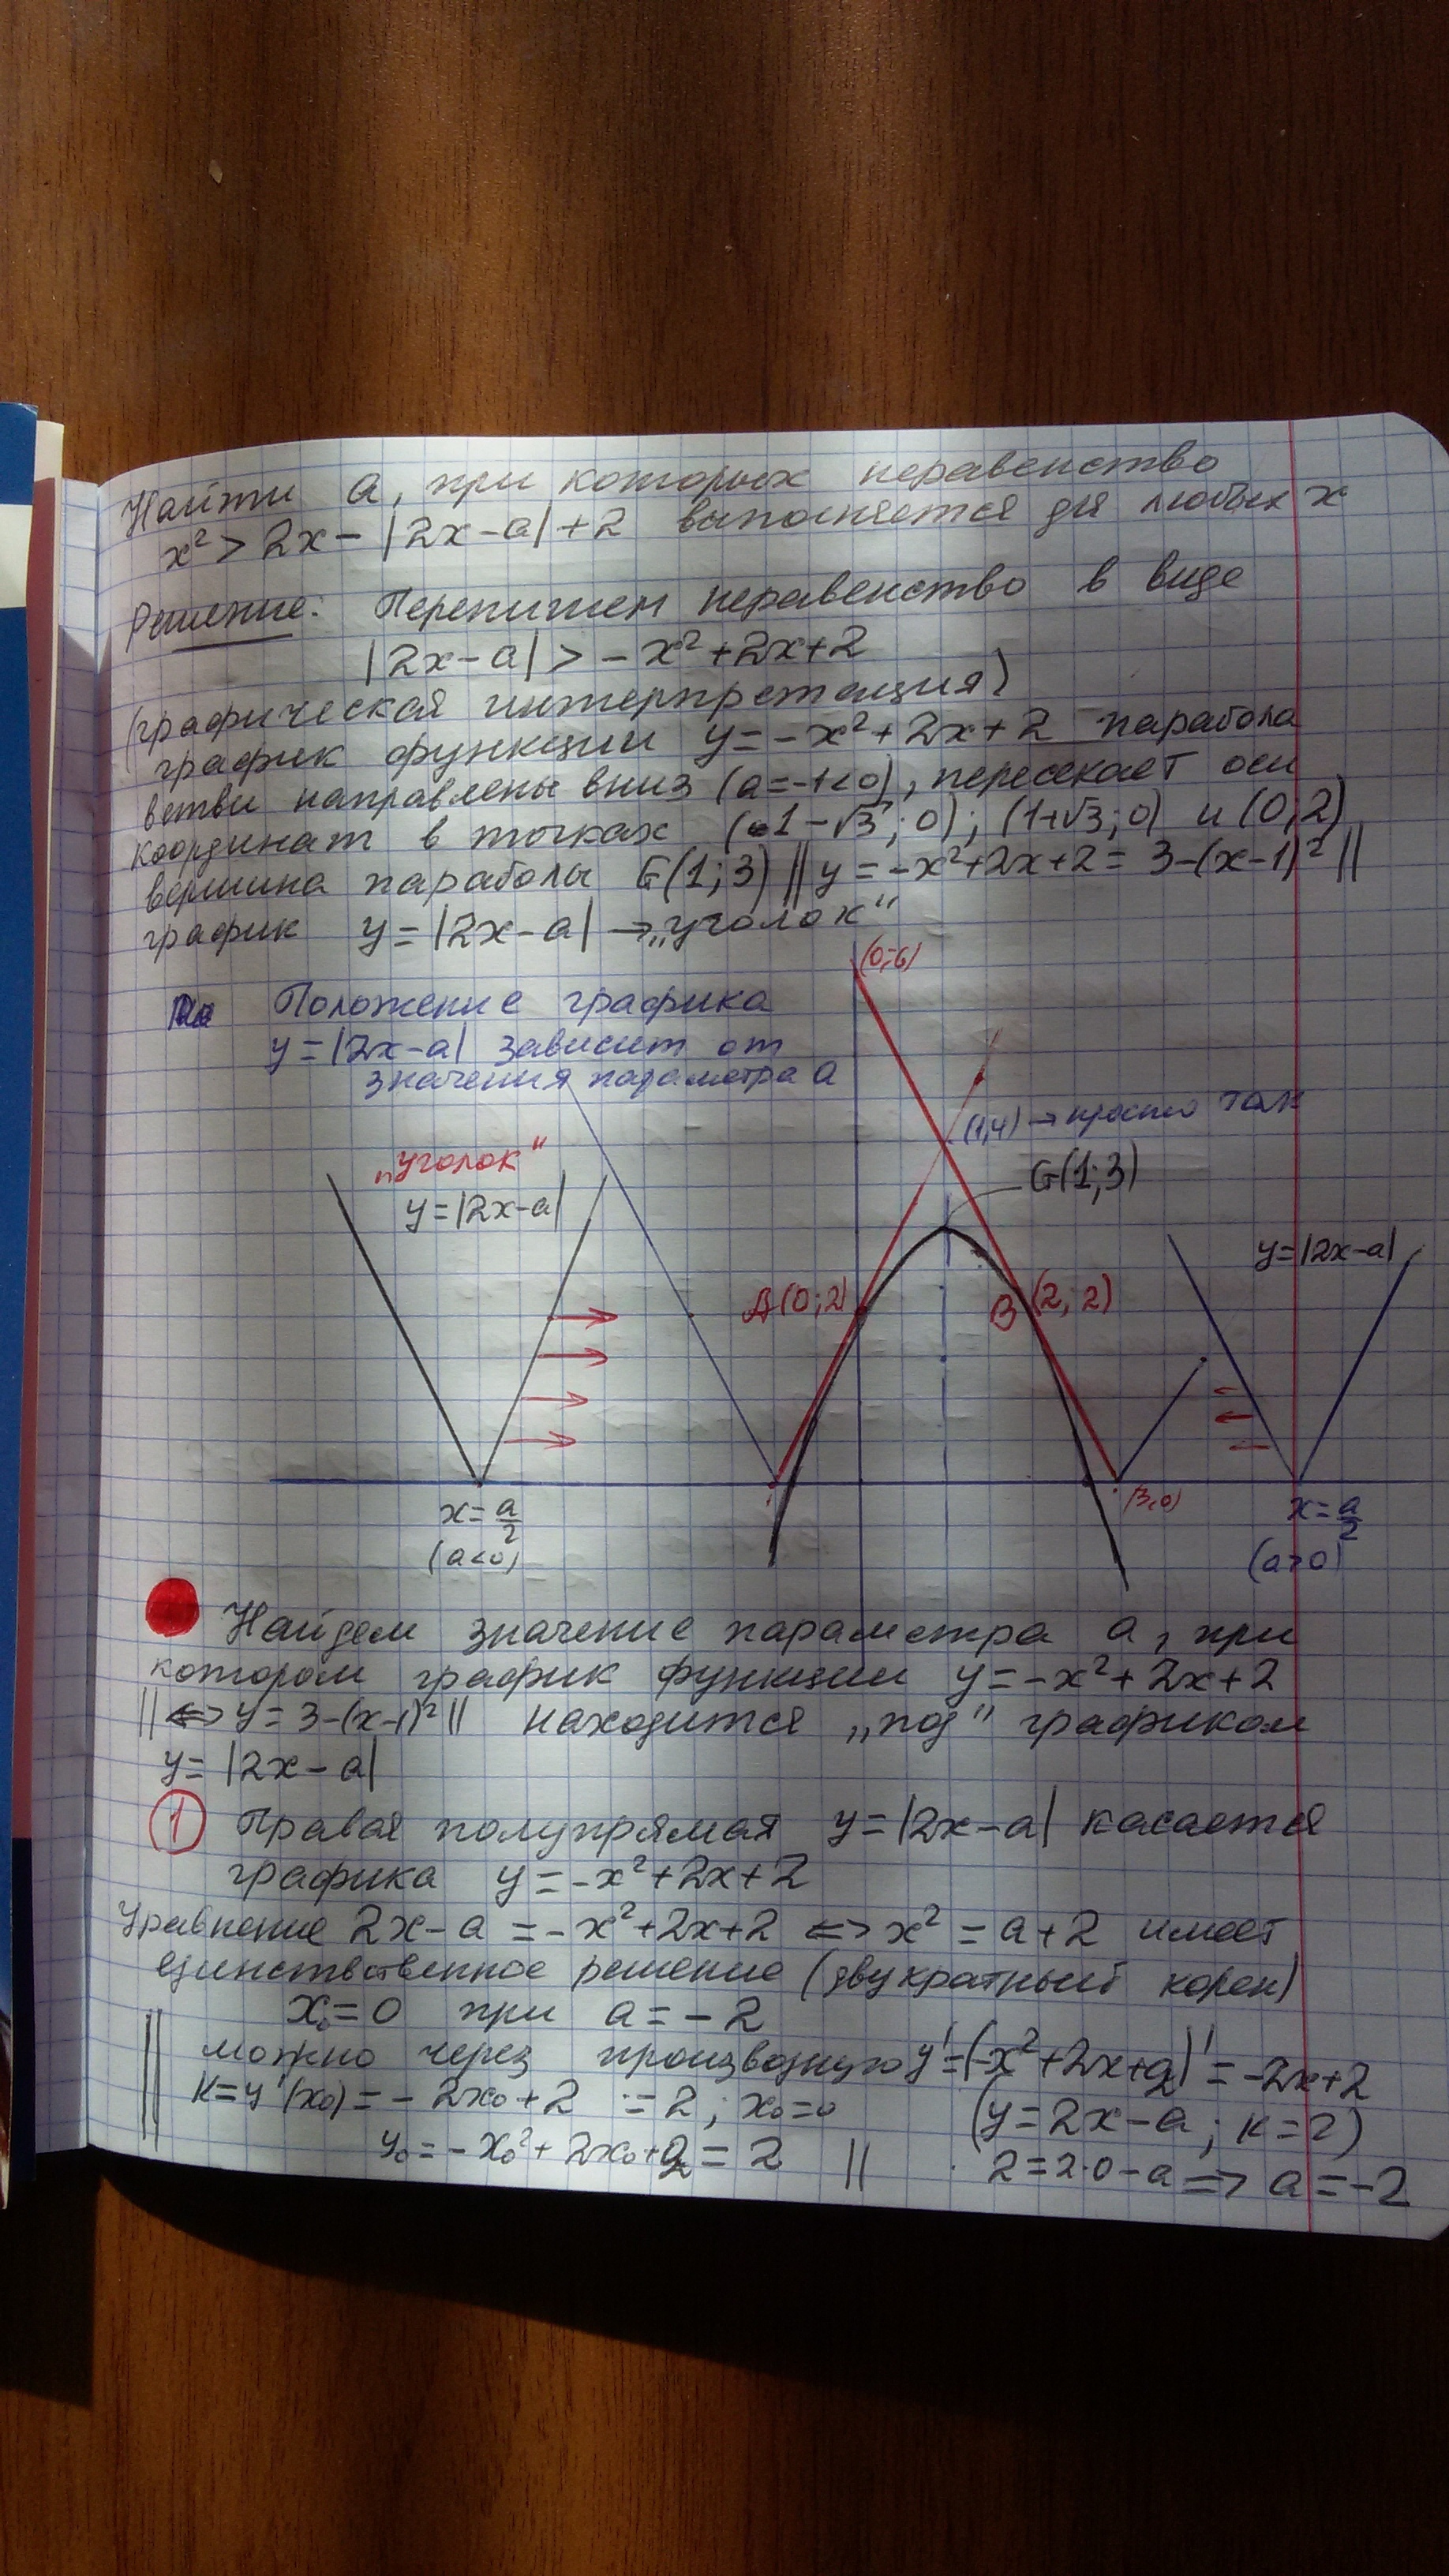 Найти a, при которых неравенство
x² > 2x - |2x-a| + 2 выполняется для любых x
Решение: Перепишем неравенство в виде
|2x-a| > -x²+2x+2
(графическая интерпретация)
график функции y=-x²+2x+2 парабола
ветви направлены вниз (a=-1<0), пересекает оси
координат в точках (1-√3; 0); (1+√3; 0) и (0; 2)
вершина параболы G(1; 3) || y = -x²+2x+2 = 3-(x-1)² ||
график y=|2x-a| → „уголок"
(0;6)
Положение графика
y=|2x-a| зависит от
значения параметра a
(1,4) → просто так
„уголок"
G(1;3)
y=|2x-a|
y=|2x-a|
A(0;2)
B(2; 2)
(3,0)
x=a/2
(a<0)
x=a/2
(a>0)
Найдем значение параметра a, при
котором график функции y=-x²+2x+2
|| <=> y=3-(x-1)² || находится „под" графиком
y=|2x-a|
1 Правая полупрямая y=|2x-a| касается
графика y=-x²+2x+2
Уравнение 2x-a = -x²+2x+2 <=> x² = a+2 имеет
единственное решение (двукратный корен)
x₀=0 при a=-2
|| можно через производную y'=(-x²+2x+2)' = -2x+2
k=y'(x₀) = -2x₀+2 := 2; x₀=0 (y=2x-a; k=2)
y₀=-x₀²+2x₀+2=2 || 2=2·0-a => a=-2